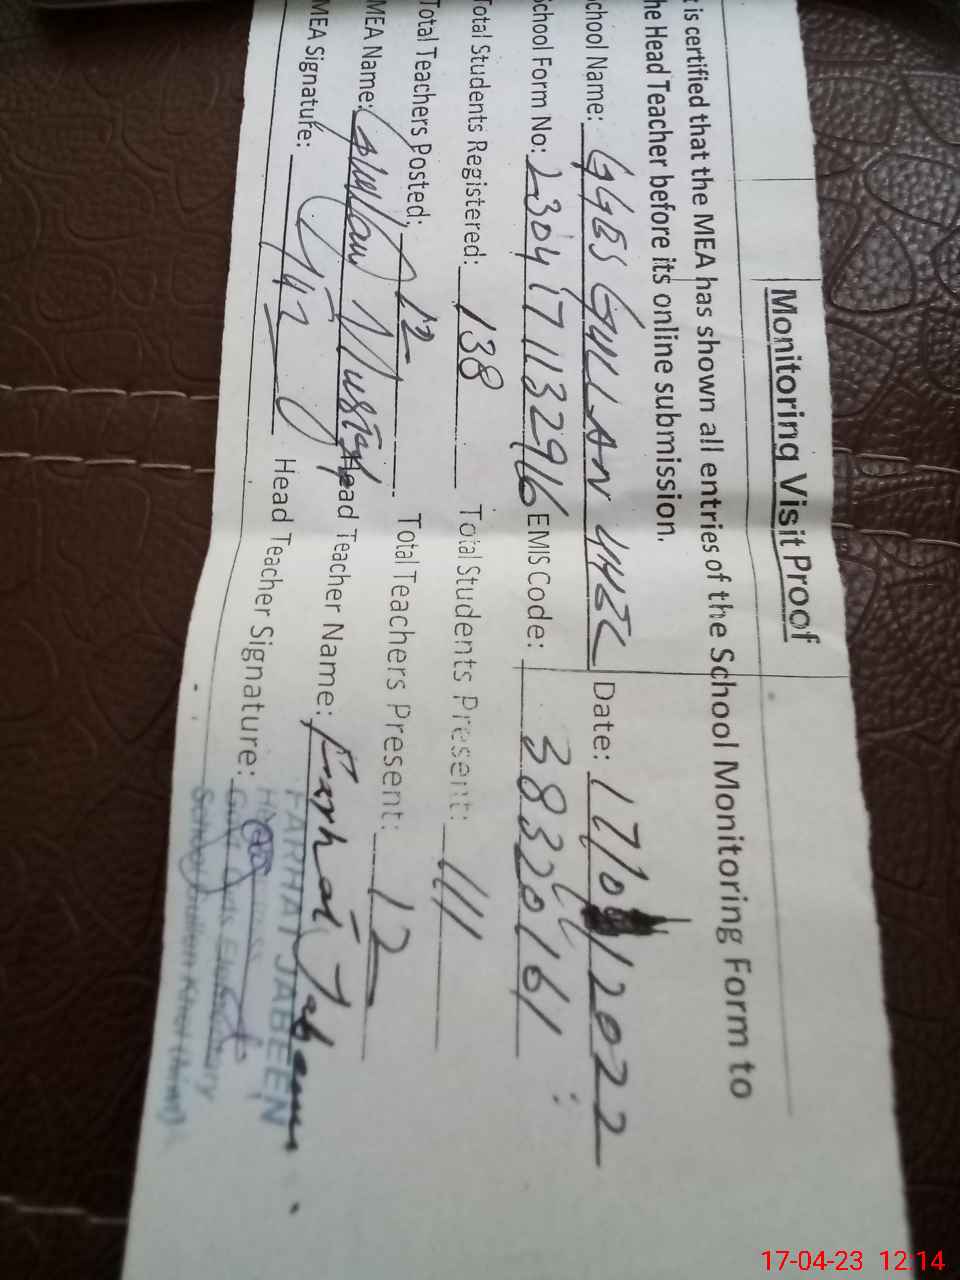 Monitoring Visit Proof
t is certified that the MEA has shown all entries of the School Monitoring Form to
he Head Teacher before its online submission.
chool Name: GGES GULLAN KHEL Date: 17/0 /2022
School Form No: 2304171132916 EMIS Code: 38320161
Total Students Registered: 138 Total Students Present: 111
Total Teachers Posted: 12 Total Teachers Present: 12
MEA Name: Ghulam Mustafa Head Teacher Name: Farhat Jabeen
MEA Signature: Head Teacher Signature:
FARHAT JABEEN
Govt Girls Elementary
School Gullan Khel
17-04-23 12:14